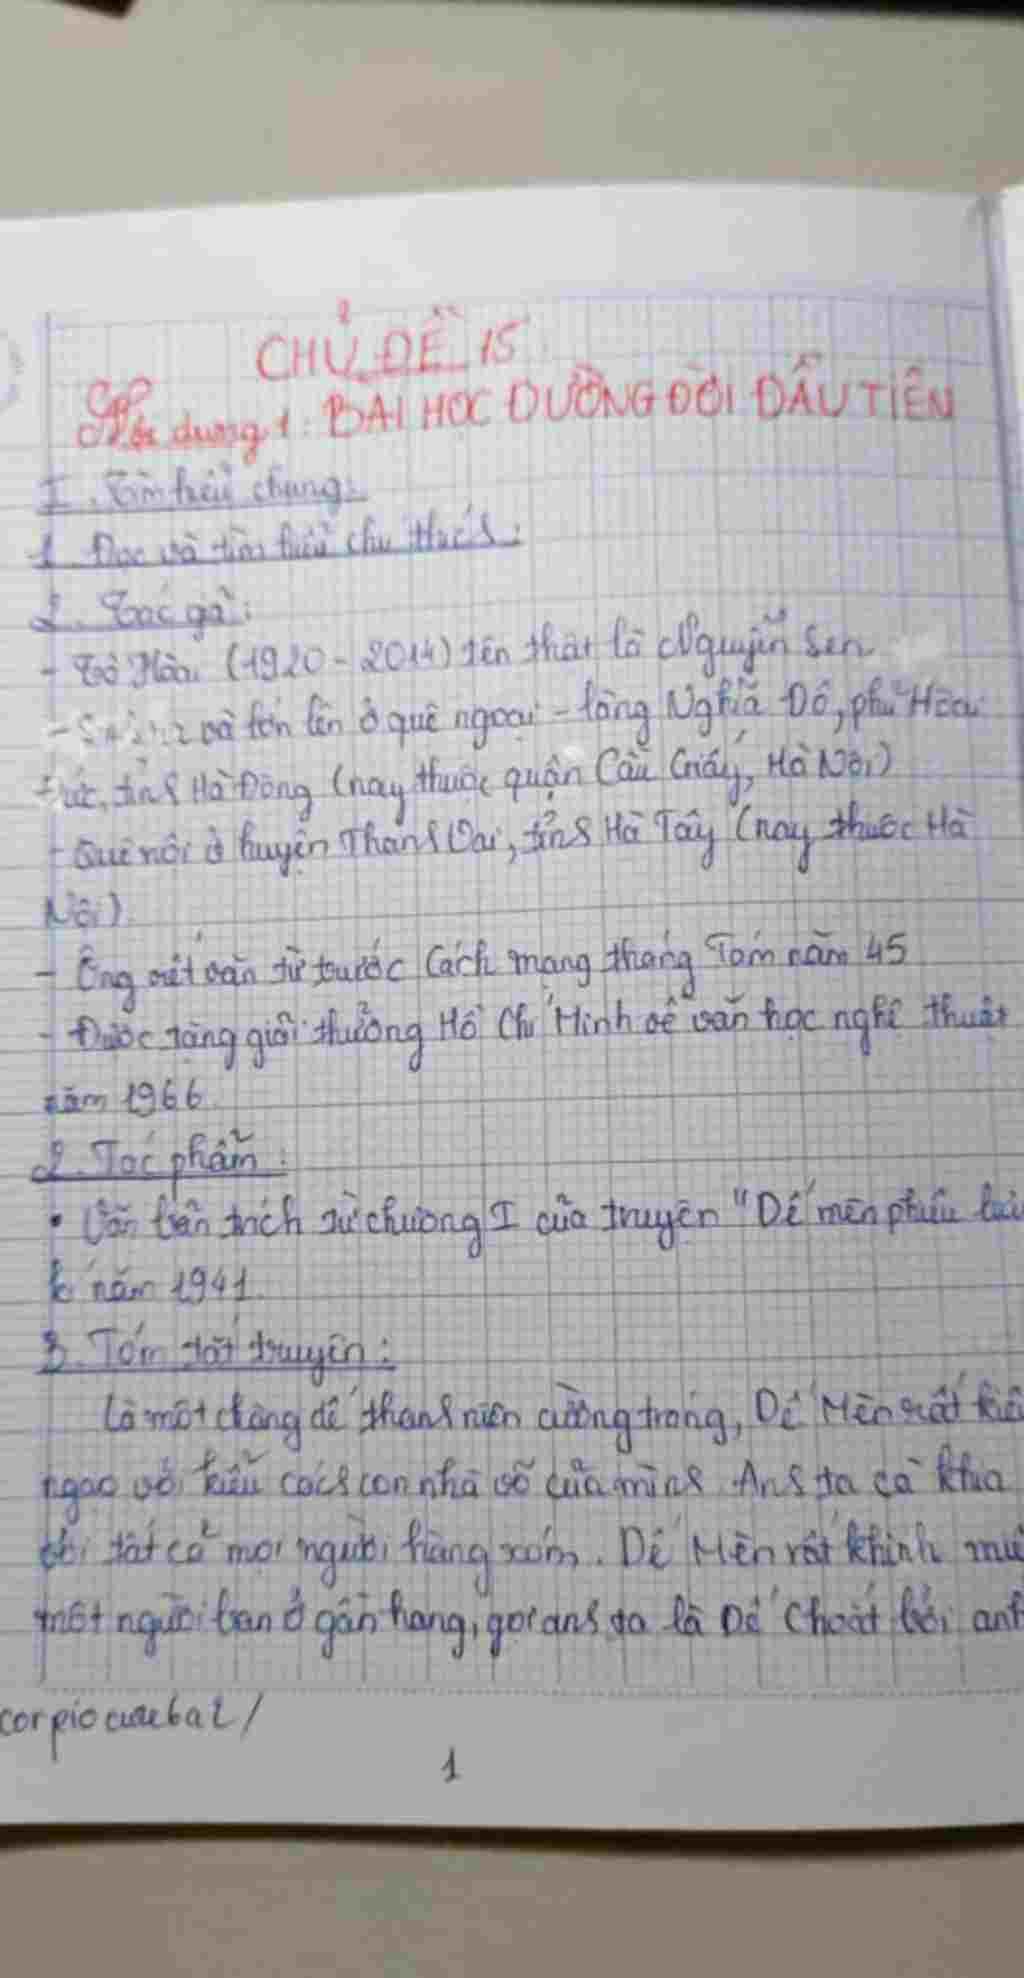 CHỦ ĐỀ 15
Nội dung 1: BÀI HỌC ĐƯỜNG ĐỜI ĐẦU TIÊN
I. Tìm hiểu chung:
1. Đọc và tìm hiểu chú thích:
2. Tác giả:
- Tô Hoài (1920-2014) tên thật là Nguyễn Sen
- Sinh ra và lớn lên ở quê ngoại - làng Nghĩa Đô, phủ Hoài
Đức, tỉnh Hà Đông (nay thuộc quận Cầu Giấy, Hà Nội)
- Quê nội ở huyện Thanh Oai, tỉnh Hà Tây (nay thuộc Hà
Nội)
- Ông viết văn từ trước Cách mạng tháng Tám năm 45
- Được tặng giải thưởng Hồ Chí Minh về văn học nghệ thuật
năm 1966
2. Tác phẩm:
• Văn bản trích từ chương I của truyện "Dế mèn phiêu lưu
kí năm 1941.
3. Tóm tắt truyện:
Là một chàng dế thanh niên cường tráng, Dế Mèn rất kiêu
ngạo với kiểu cách con nhà võ của mình. Anh ta cà khịa
với tất cả mọi người hàng xóm. Dế Mèn rất khinh
một người bạn ở gần hang, gọi anh ta là Dế Choắt bởi anh
1